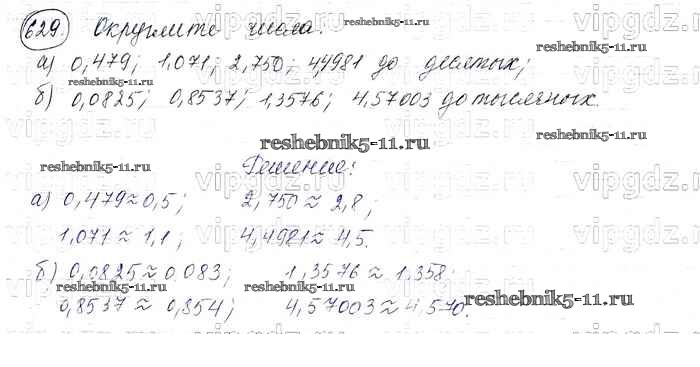 629. Округлите числа.
reshebnik5-11.ru
vipgdz.ru
а) 0,479; 1,071; 2,750; 4,4981 до десятых;
reshebnik5-11.ru
б) 0,0825; 0,8537; 1,3576; 4,57003 до тысячных.
reshebnik5-11.ru
reshebnik5-11.ru
reshebnik5-11.ru
Решение:
vipgdz.ru
а) 0,479 ≈ 0,5; 2,750 ≈ 2,8;
1,071 ≈ 1,1; 4,4981 ≈ 4,5.
б) 0,0825 ≈ 0,083; 1,3576 ≈ 1,358;
reshebnik5-11.ru
reshebnik5-11.ru
reshebnik5-11.ru
0,8537 ≈ 0,854; 4,57003 ≈ 4,570.